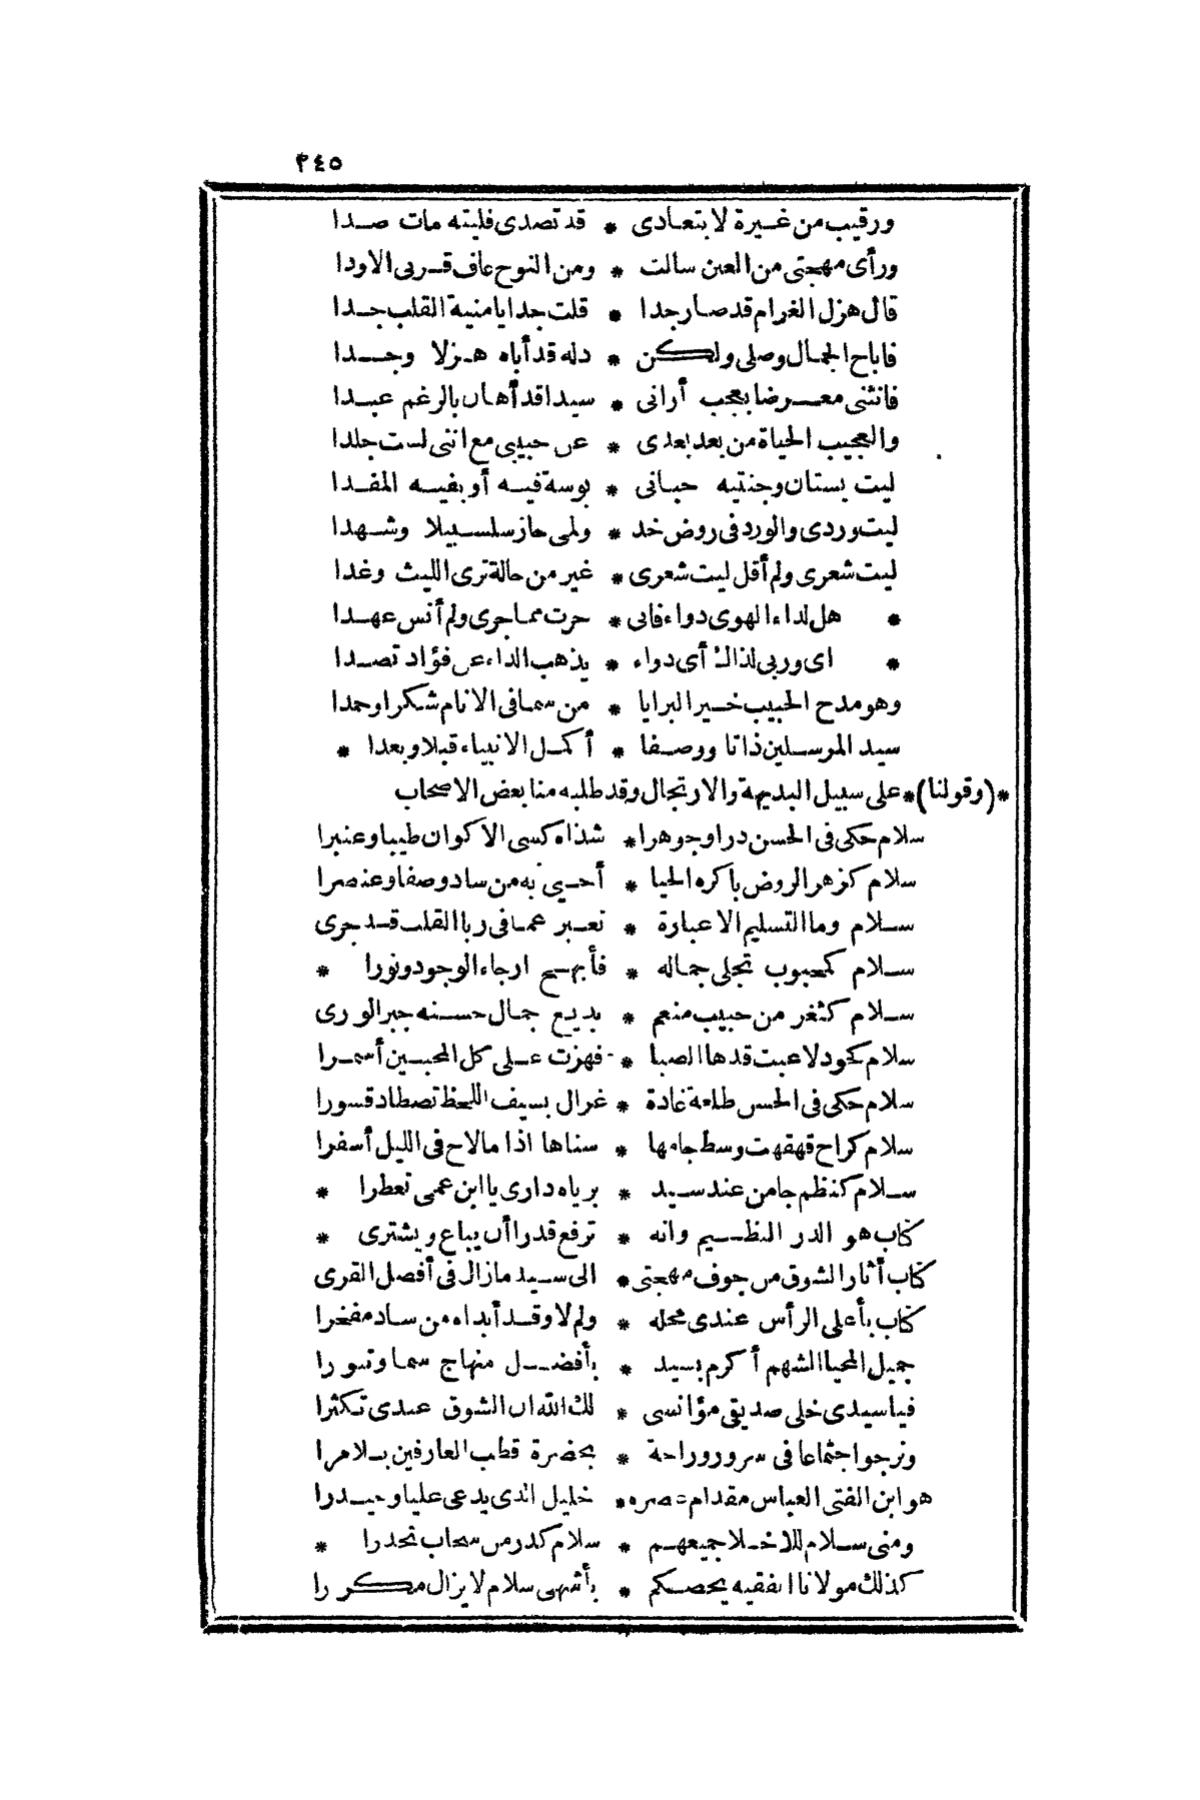 ٣٤٥
ورقيب من غيرة لا بتعادى * قد تصدى فليته مات صدا
ورأى مهجتى من العين سالت * ومن النوح عاف قربى الاودا
قال هزل الغرام قد صار جدا * قلت جدا يا منية القلب جدا
فاباح الجمال وصلى ولكن * دله قد أباه هزلا وجدا
فانثنى معرضا بعجب أرانى * سيدا قد أهان بالرغم عبدا
والعجيب الحياة من بعد بعدى * عن حبيبى مع اننى لست جلدا
ليت بستان وجنتيه حبانى * بوسة فيه أو بفيه المفدا
ليت وردى والورد فى روض خد * ولمى حاز سلسبيلا وشهدا
ليت شعرى ولم أقل ليت شعرى * غير من حالة ترى الليث وغدا
* هل لداء الهوى دواء فانى * حرت مما جرى ولم أنس عهدا
* اى وربى لذاك أى دواء * يذهب الداء عن فؤاد تصدا
وهو مدح الحبيب خير البرايا * من سما فى الانام شكرا وحمدا
سيد المرسلين ذاتا ووصفا * أكمل الانبياء قبلا وبعدا *
*(وقولنا)* على سبيل البديهة والارتجال وقد طلبه منا بعض الاصحاب
سلام حكى فى الحسن درا وجوهرا * شذاه كسى الاكوان طيبا وعنبرا
سلام كزهر الروض باكره الحيا * أحيي به من ساد وصفا وعنصرا
سلام وما التسليم الا عبارة * تعبر عما فى ربا القلب قد جرى
سلام كمحبوب تجلى جماله * فأبهج ارجاء الوجود ونورا *
سلام كثغر من حبيب منعم * بديع جمال حسنه حير الورى
سلام كخود لاعبت قدها الصبا * فهزت على كل المحبين أسمرا
سلام حكى فى الحسن طلعة غادة * غزال بسيف اللحظ تصطاد قسورا
سلام كراح قهقهت وسط جامها * سناها اذا ما لاح فى الليل أسفرا
سلام كنظم جا من عند سيد * برياه دارى يا ابن عمى تعطرا *
كتاب هو الدر النظيم وانه * ترفع قدرا أن يباع ويشترى *
كتاب أثار الشوق من جوف مهجتى * الى سيد ما زال فى أفضل القرى
كتاب بأعلى الرأس عندى محله * ولم لا وقد أبداه من ساد مفخرا
جميل المحيا الشهم أكرم بسيد * بأفضل منهاج سما وتسورا
فيا سيدى خلى صديقى مؤانسى * لك الله ان الشوق عندى تكثرا
ونرجو اجتماعا فى سرور وراحة * بحضرة قطب العارفين بلا مرا
هو ابن الفتى العباس مقدام عصره * خليل الذى يدعى عليا وحيدرا
ومنى سلام للاخلا جميعهم * سلام كدر من سحاب تحدرا *
كذلك مولانا الفقيه يحصكم * بأشهى سلام لا يزال مكررا